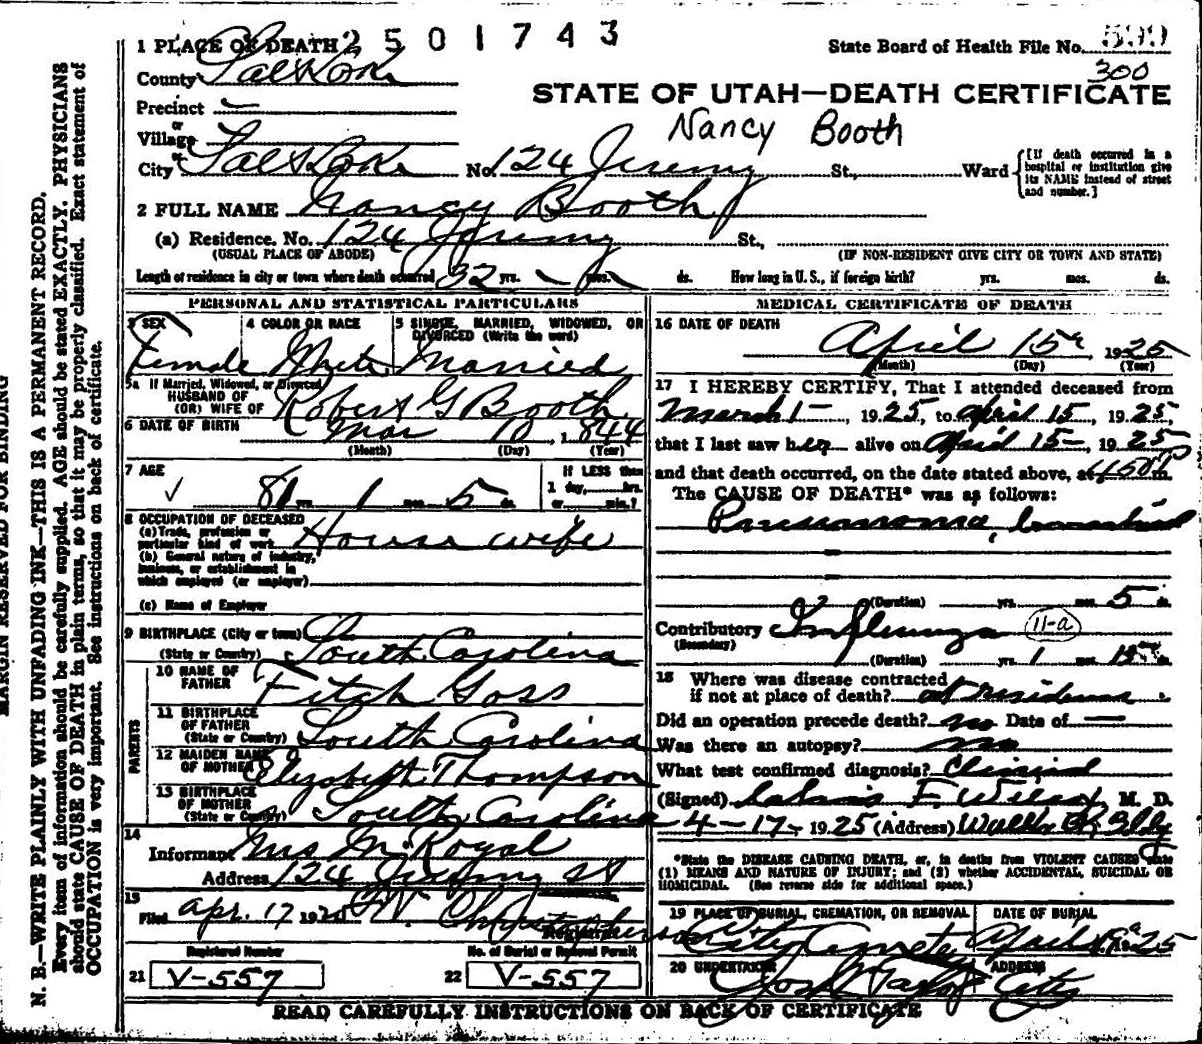 1 PLACE OF DEATH 2 5 0 1 7 4 3
State Board of Health File No. 599
County Salt Lake
300
STATE OF UTAH—DEATH CERTIFICATE
Precinct —
Nancy Booth
or
Village —
or
City Salt Lake No. 124 Jeremy St., Ward {[If death occurred in a hospital or institution give its NAME instead of street and number.]
2 FULL NAME Nancy Booth
(a) Residence. No. 124 Jeremy St.,
(USUAL PLACE OF ABODE) (IF NON-RESIDENT GIVE CITY OR TOWN AND STATE)
Length of residence in city or town where death occurred 32 yrs. — mos. ds. How long in U. S., if foreign birth? yrs. mos. ds.
PERSONAL AND STATISTICAL PARTICULARS
3 SEX 4 COLOR OR RACE 5 SINGLE, MARRIED, WIDOWED, OR DIVORCED (Write the word)
Female White Married
5a If Married, Widowed, or Divorced
HUSBAND OF
(OR) WIFE OF Robert G Booth
6 DATE OF BIRTH Mar 10, 1844
(Month) (Day) (Year)
7 AGE If LESS than
81 yrs. 1 mos. 5 ds. 1 day, hrs.
or min.?
8 OCCUPATION OF DECEASED
(a) Trade, profession or
particular kind of work House wife
(b) General nature of industry,
business, or establishment in
which employed (or employer)
(c) Name of Employer
9 BIRTHPLACE (City or town)
(State or Country) South Carolina
PARENTS
10 NAME OF
FATHER Fitch Goss
11 BIRTHPLACE
OF FATHER
(State or Country) South Carolina
12 MAIDEN NAME
OF MOTHER Elizabeth Thompson
13 BIRTHPLACE
OF MOTHER
(State or Country) South Carolina
14
Informant Mrs M. Royal
Address 124 Jeremy St
15
Filed Apr. 17 19
Registrar
Registered Number No. of Burial or Removal Permit
21 V-557 22 V-557
MEDICAL CERTIFICATE OF DEATH
16 DATE OF DEATH
April 15, 1925
(Month) (Day) (Year)
17 I HEREBY CERTIFY, That I attended deceased from
March 1 —, 1925, to April 15, 1925,
that I last saw her alive on April 15 —, 1925
and that death occurred, on the date stated above, at m.
The CAUSE OF DEATH* was as follows:
Pneumonia,
(Duration) yrs. mos. 5 ds.
Contributory Influenza 11-a
(Secondary)
(Duration) yrs. 1 mos. 15 ds.
18 Where was disease contracted
if not at place of death? at residence
Did an operation precede death? no Date of —
Was there an autopsy? no
What test confirmed diagnosis? Clinical
(Signed) F. Wilcox M. D.
4-17-1925 (Address) Walker Bk Bldg
*State the DISEASE CAUSING DEATH, or, in deaths from VIOLENT CAUSES state
(1) MEANS AND NATURE OF INJURY; and (2) whether ACCIDENTAL, SUICIDAL OR
HOMICIDAL. (See reverse side for additional space.)
19 PLACE OF BURIAL, CREMATION, OR REMOVAL DATE OF BURIAL
City Cemetery April 25
20 UNDERTAKER ADDRESS
Taylor City
READ CAREFULLY INSTRUCTIONS ON BACK OF CERTIFICATE
MARGIN RESERVED FOR BINDING
N. B.—WRITE PLAINLY WITH UNFADING INK—THIS IS A PERMANENT RECORD.
Every item of information should be carefully supplied. AGE should be stated EXACTLY. PHYSICIANS
should state CAUSE OF DEATH in plain terms, so that it may be properly classified. Exact statement of
OCCUPATION is very important. See instructions on back of certificate.